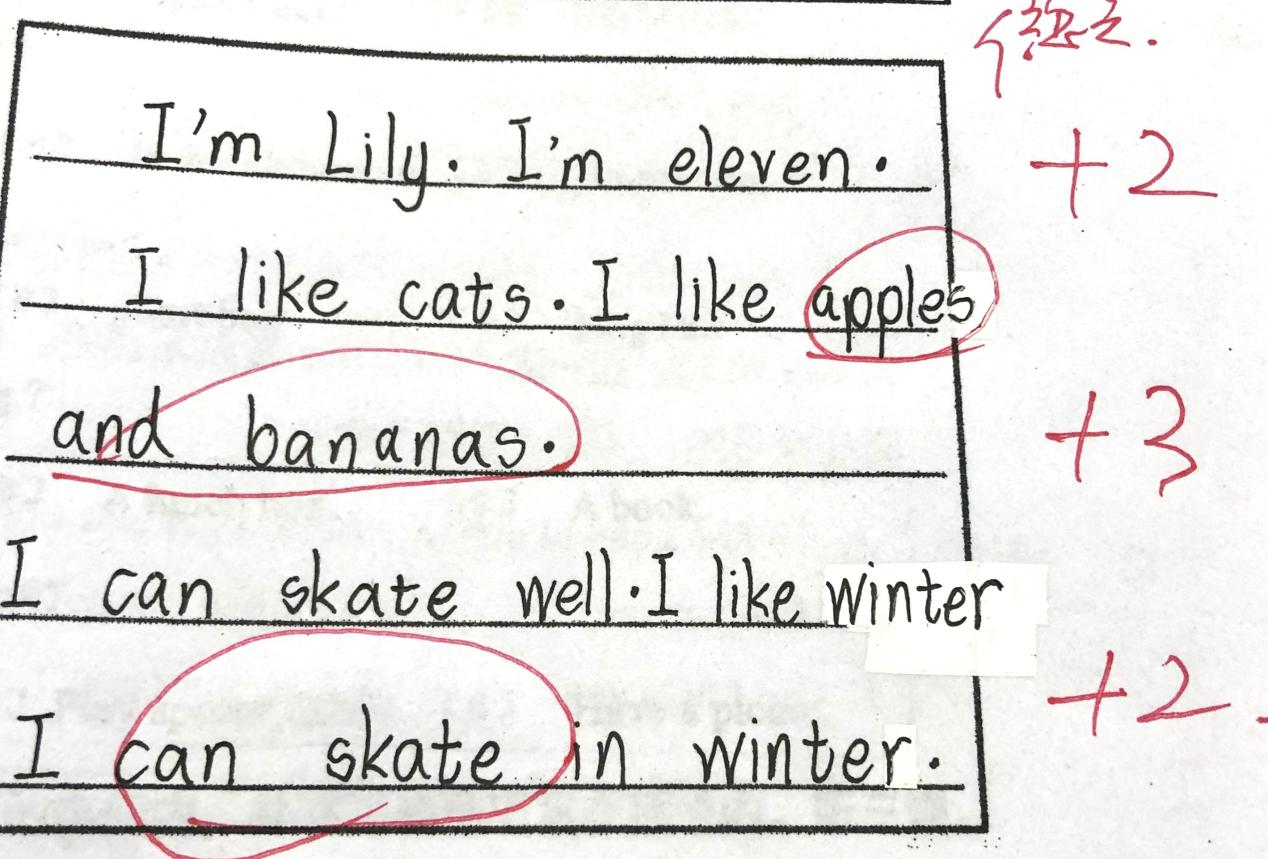 I'm Lily. I'm eleven.
+2
I like cats. I like apples
and bananas.
+3
I can skate well. I like winter
+2
I can skate in winter.